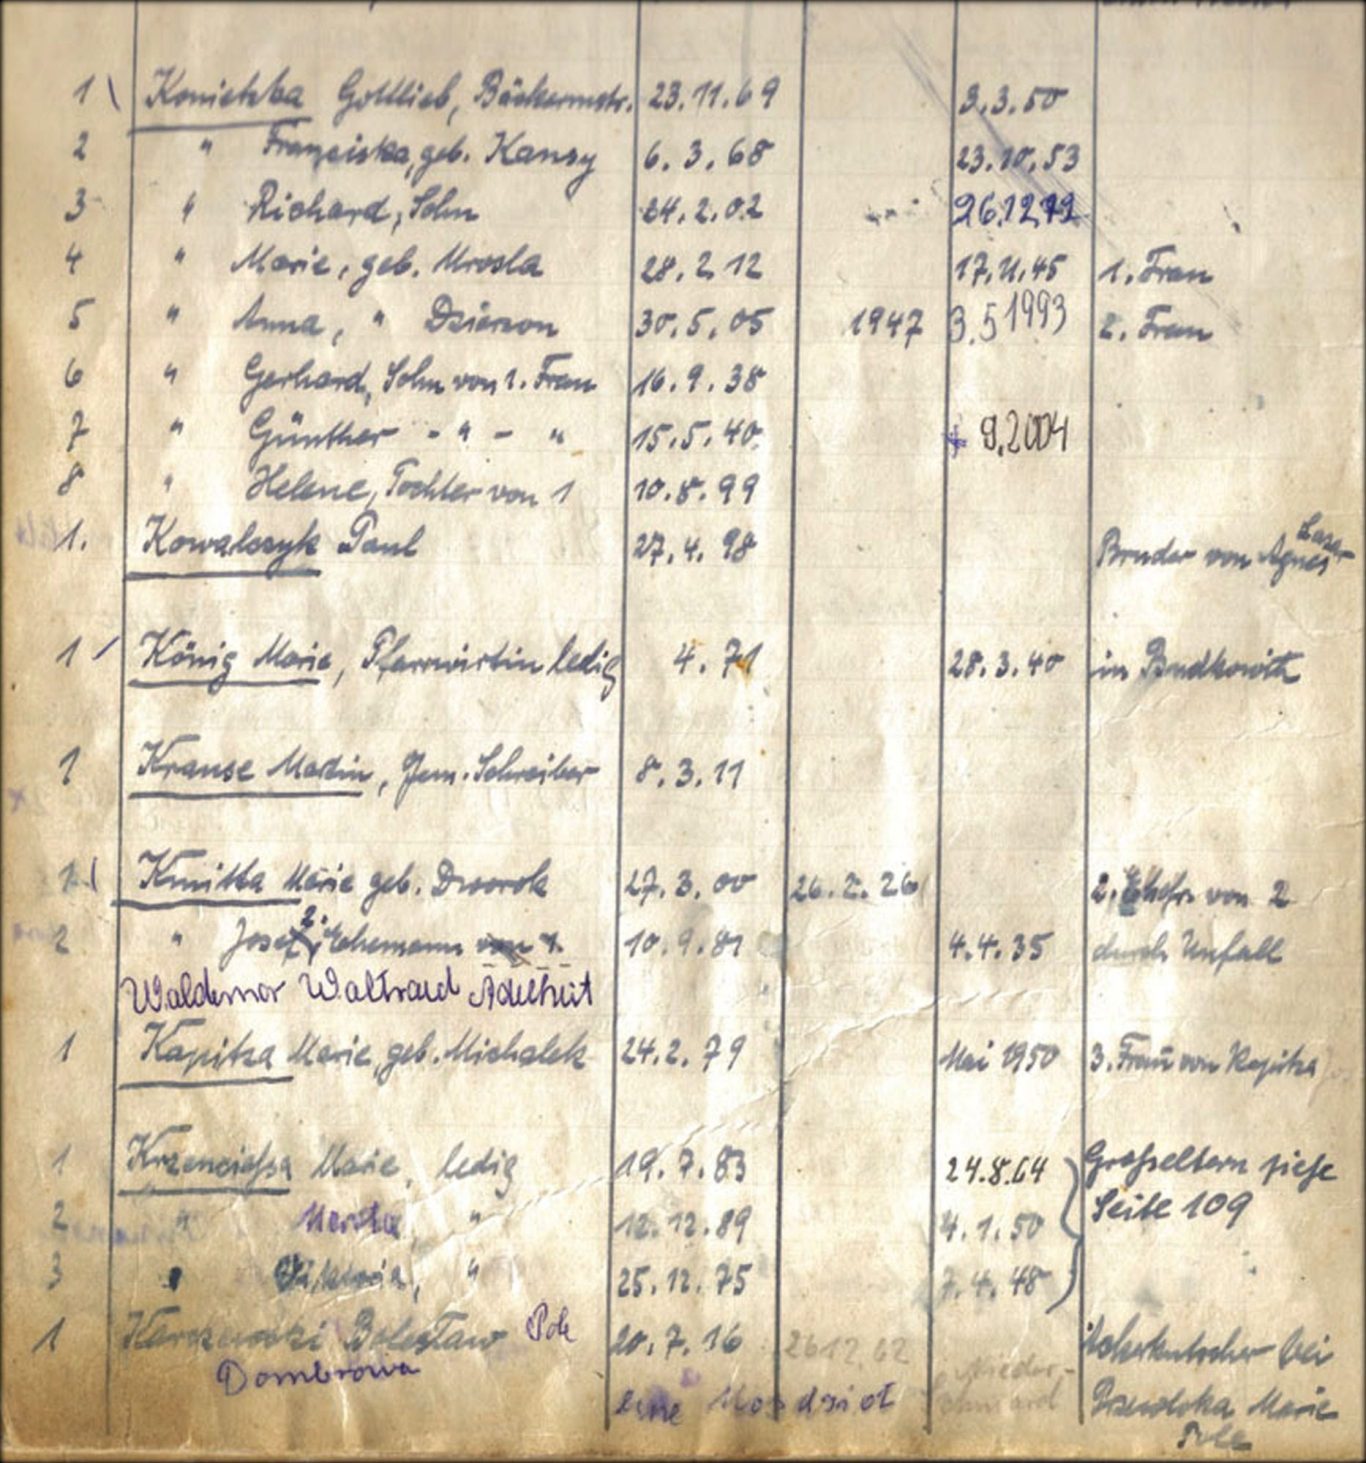 1 Konietzka Gottlieb, Bäckermstr. 23.11.69 3.3.50
2 " Franziska, geb. Kansy 6.3.68 23.10.53
3 " Richard, Sohn 24.2.02 26.12.72
4 " Marie, geb. Mrosla 28.2.12 17.11.45 1. Frau
5 " Anna, " Dzierzon 30.5.05 1947 3.5 1993 2. Frau
6 " Gerhard, Sohn von 1. Frau 16.9.38
7 " Günther - " - " 15.5.40. 9.2004
8 " Helene, Tochter von 1 10.8.99
1. Kowalczyk Paul 27.4.98 Bruder von Agnes
1 König Marie, Pfarrwirtin ledig 4.71 28.3.40 in Budkowitz
1 Krause Martin, Gem. Schreiber 8.3.11
1 Kmitta Marie geb. Dworok 27.3.00 26.2.26 2. Ehefr. von 2
2 " Josef, 2. Ehemann von 1. 10.9.81 4.4.35 durch Unfall
Waldemar Waltraud Adelheit
1 Kapitza Marie, geb. Michalek 24.2.79 Mai 1950 3. Frau von Kapitza
1 Krzenciessa Marie, ledig 19.7.83 24.8.64 Großeltern siehe
2 " " 12.12.89 4.1.50 Seite 109
3 " Viktoria, " 25.12.75 7.4.48
1 Karczewski Bolesław Pole 20.7.16 26 12 62 Ackerkutscher bei
Dombrowa
Marie
Pole